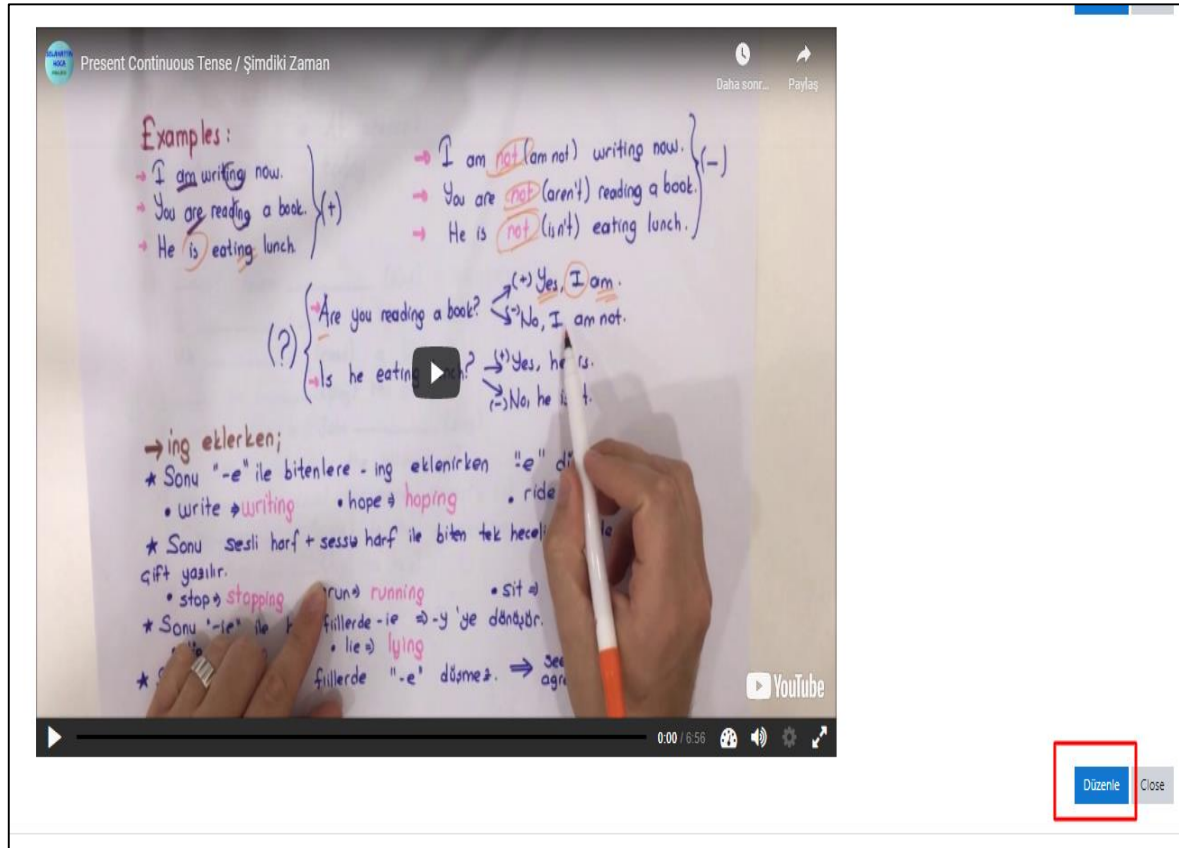 Present Continuous Tense / Şimdiki Zaman
Daha sonr...
Paylaş
Examples:
→ I am writing now.
→ You are reading a book.
→ He is eating lunch
(+)
→ I am not (am not) writing now.
→ You are not (aren't) reading a book.
→ He is not (isn't) eating lunch.
(-)
(?)
→ Are you reading a book?
(+) Yes, I am.
(-) No, I am not.
→ Is he eating
(+) Yes, he is.
(-) No, he
→ ing eklerken;
★ Sonu "-e" ile bitenlere - ing eklenirken "-e"
• write ⇒ writing • hope ⇒ hoping • ride
★ Sonu sesli harf + sessiz harf ile biten tek
çift yazılır.
• stop ⇒ stopping run ⇒ running • sit ⇒
★ Sonu "-ie" ile fiillerde -ie ⇒ -y 'ye dönüşür.
• lie ⇒ lying
★ fiillerde "-e" düşmez. ⇒
YouTube
0:00 / 6:56
Düzenle
Close